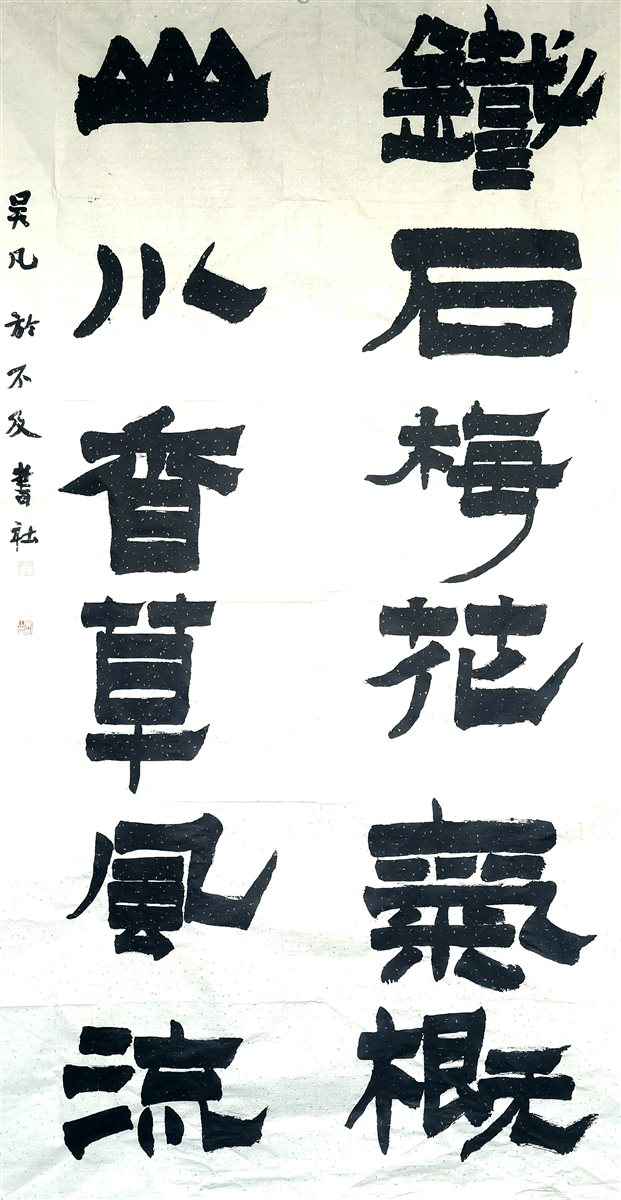 鐵石梅花氣概
山川香草風流
吴凡於不及書社